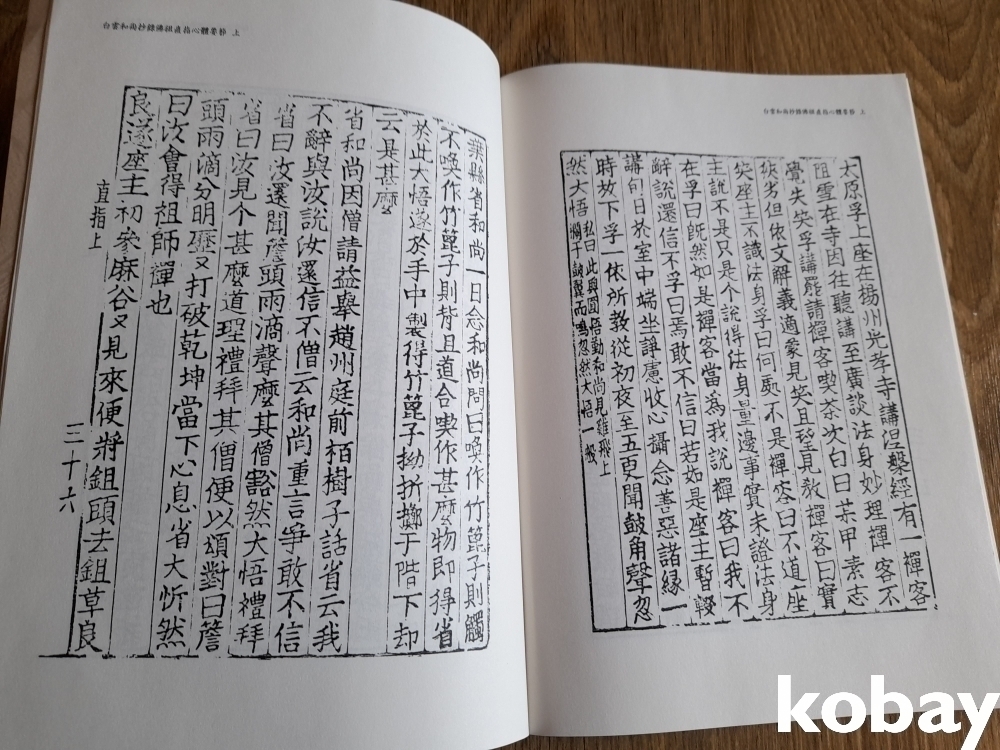 白雲和尚抄錄佛祖直指心體要節 上
太原孚上座在揚州光孝寺講涅槃經有一禪客
阻雪在寺因往聽講至廣談法身妙理禪客不
覺失笑孚講罷請禪客喫茶次白曰某甲素志
狹劣但依文解義適蒙見笑且望見敎禪客曰實
笑座主不識法身孚曰何處不是禪客曰不道座
主說不是只是个說得法身量邊事實未證法身
在孚曰旣然如是禪客當爲我說禪客曰我不
辭說還信不孚曰焉敢不信曰若如是座主暫輟
講旬日於室中端坐諍慮收心攝念善惡諸緣一
時放下孚一依所敎從初夜至五更聞鼓角聲忽
然大悟 私曰此與圜悟勤和尚見雞飛上
欄干鼓翼而鳴忽然大悟一般
白雲和尚抄錄佛祖直指心體要節 上
葉縣省和尚一日念和尚問曰喚作竹篦子則觸
不喚作竹篦子則背且道合喚作甚麼物即得省
於此大悟遂於手中掣得竹篦子拗折擲于階下却
云是甚麼
省和尚因僧請益擧趙州庭前栢樹子話省云我
不辭與汝說汝還信不僧云和尚重言爭敢不信
省曰汝還聞簷頭雨滴聲麼其僧豁然大悟禮拜
省曰汝見个甚麼道理禮拜其僧便以頌對曰簷
頭雨滴分明瀝又打破乾坤當下心息省大忻然
曰汝會得祖師禪也
良遂座主初參麻谷又見來便將鉏頭去鉏草良
直指上 三十六
kobay